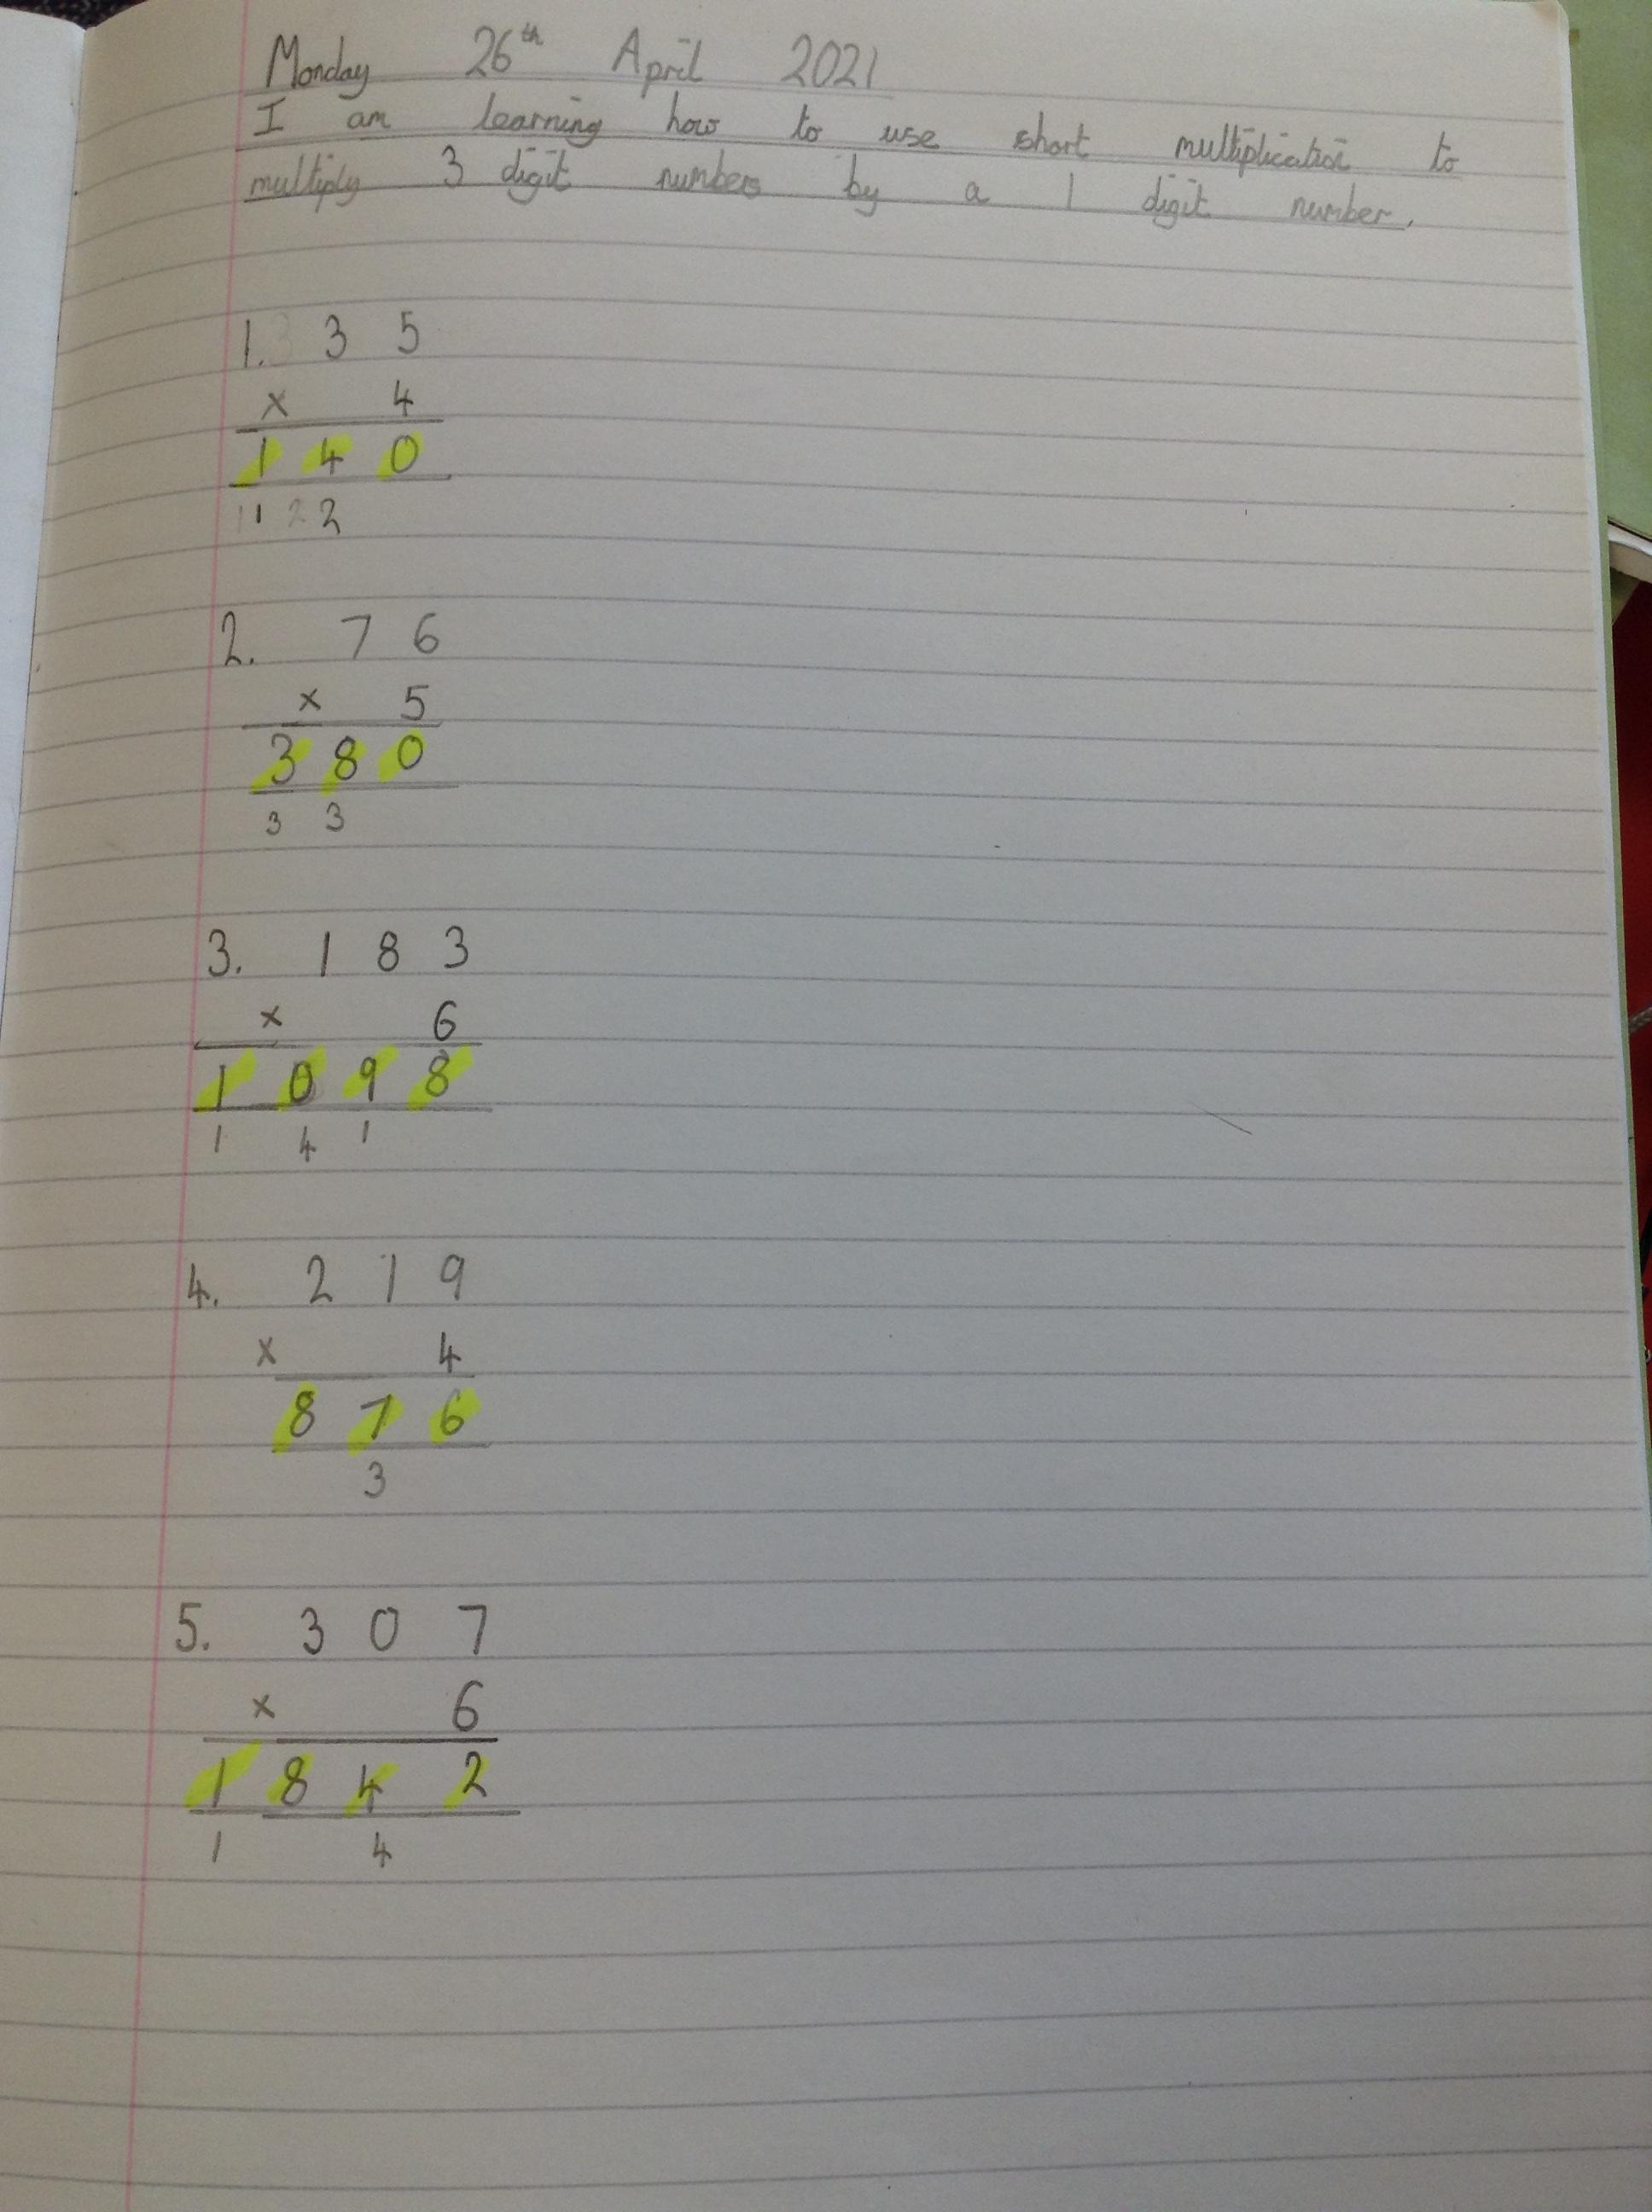 Monday 26th April 2021
I am learning how to use short multiplication to
multiply 3 digit numbers by a 1 digit number.
1. 3 5
x 4
1 4 0
1 2
2. 7 6
x 5
3 8 0
3 3
3. 1 8 3
x 6
1 0 9 8
1 4 1
4. 2 1 9
x 4
8 7 6
3
5. 3 0 7
x 6
1 8 4 2
1 4